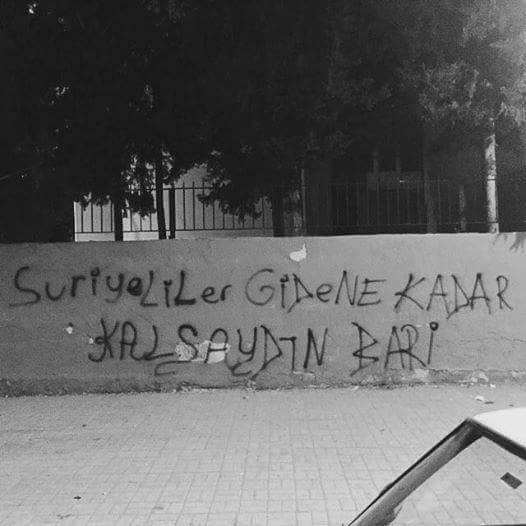 Suriyeliler GiDeNE KADAR
KALSAYDIN BARi